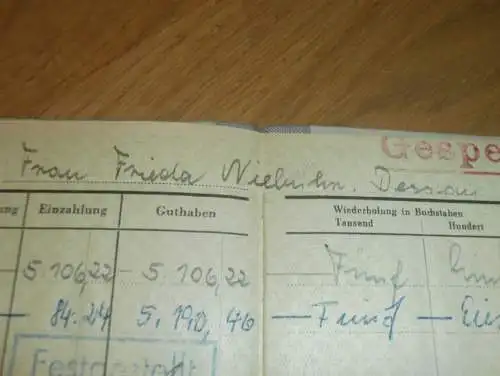 Gespe
Frau Frieda Niebuhr. Dessau
ung Einzahlung Guthaben Wiederholung in Buchstaben
Tausend Hundert
5.106,22 — 5.106,22 Fünf
— 84.24 5.190,46 — Fünf — Ein
Festgestellt